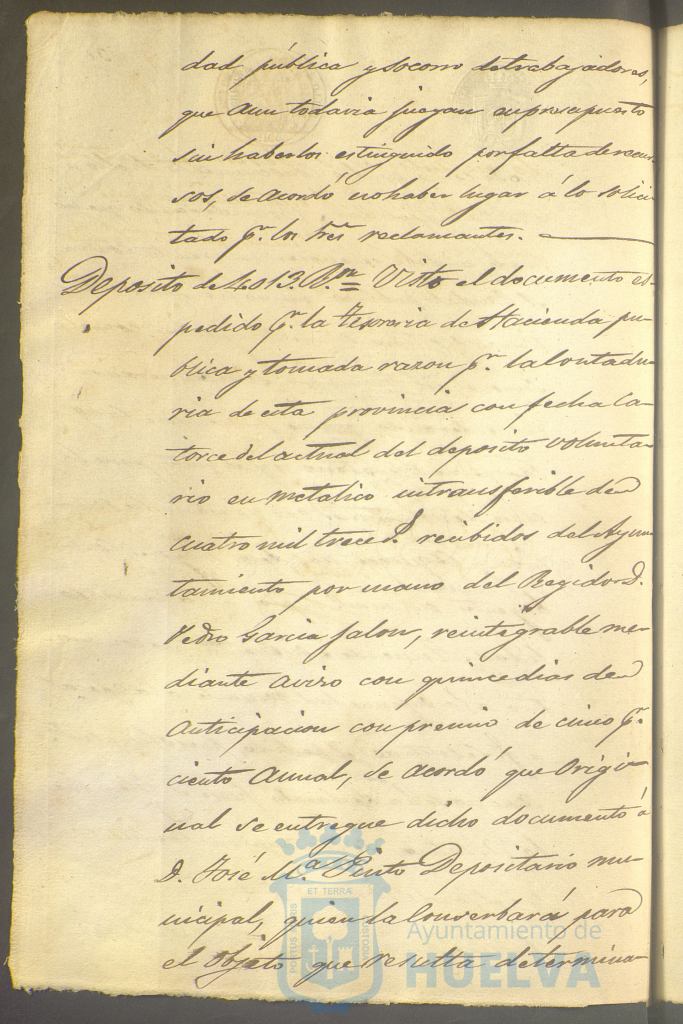 dad pública y socorro de trabajadores,
que aun todavia juegan en presupuesto
sin haberlos estinguido por falta de recur-
sos, se acordó no haber lugar á lo solici-
tado pr. los tres reclamantes.
Deposito de 4.013 Rn = Visto el documento es-
pedido pr. la Tesoreria de Hacienda pu-
blica y tomada razon pr. la Contadu-
ria de esta provincia con fecha ca-
torce del actual del deposito volunta-
rio en metalico intransferible de
cuatro mil trece r. recibidos del Ayun-
tamiento por mano del Regidor D.
Pedro Garcia Jalon, reintegrable me-
diante aviso con quince dias de
anticipacion con premio de cinco pr.
ciento anual, se acordó que origi-
nal se entregue dicho documento á
D. José M.a Pinto Depositario mu-
nicipal, quien la conserbará para
el objeto que resulta determina-
PORTUS MARIS
ET TERRÆ
CUSTODIA
Ayuntamiento de
HUELVA